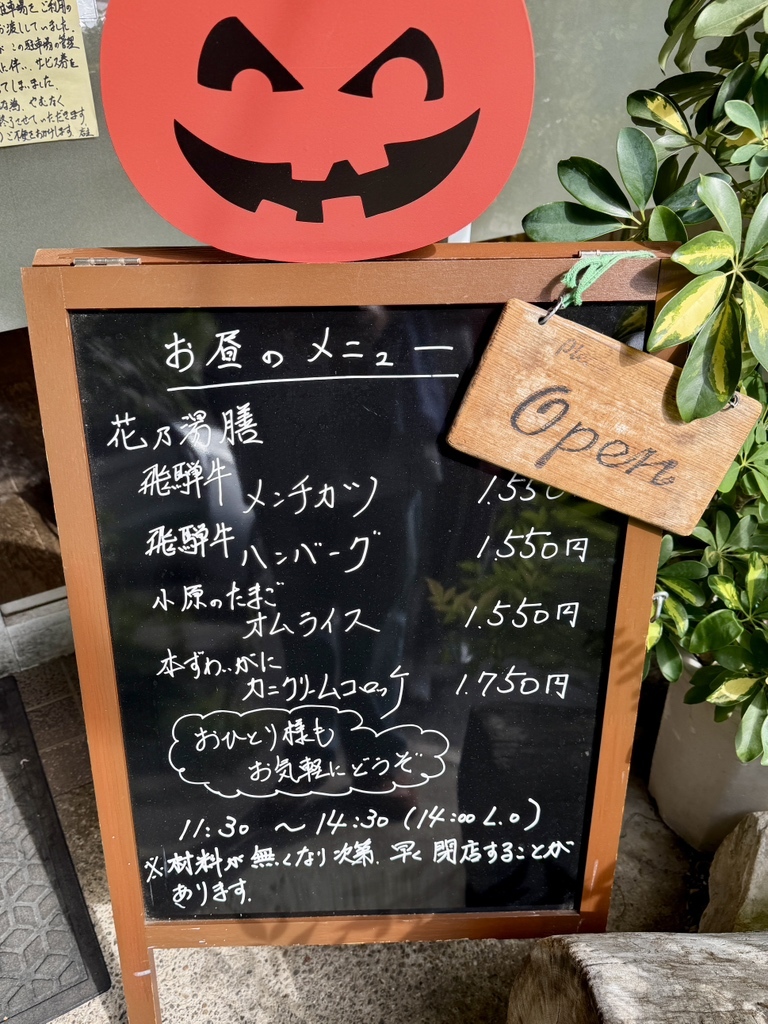 駐車場をご利用の
お渡ししていました
この駐車場の管理
に伴い、サービス券を
てしまいました。
終了させていただきます
ご不便をおかけします 店主
お昼のメニュー
Open
花乃湯膳
飛騨牛 メンチカツ 1.550
飛騨牛 ハンバーグ 1.550円
小原のたまご
オムライス 1.550円
本ずわいがに
カニクリームコロッケ 1.750円
おひとり様も
お気軽にどうぞ
11:30 〜 14:30 (14:00 L.O)
※材料が無くなり次第、早く閉店することが
あります。